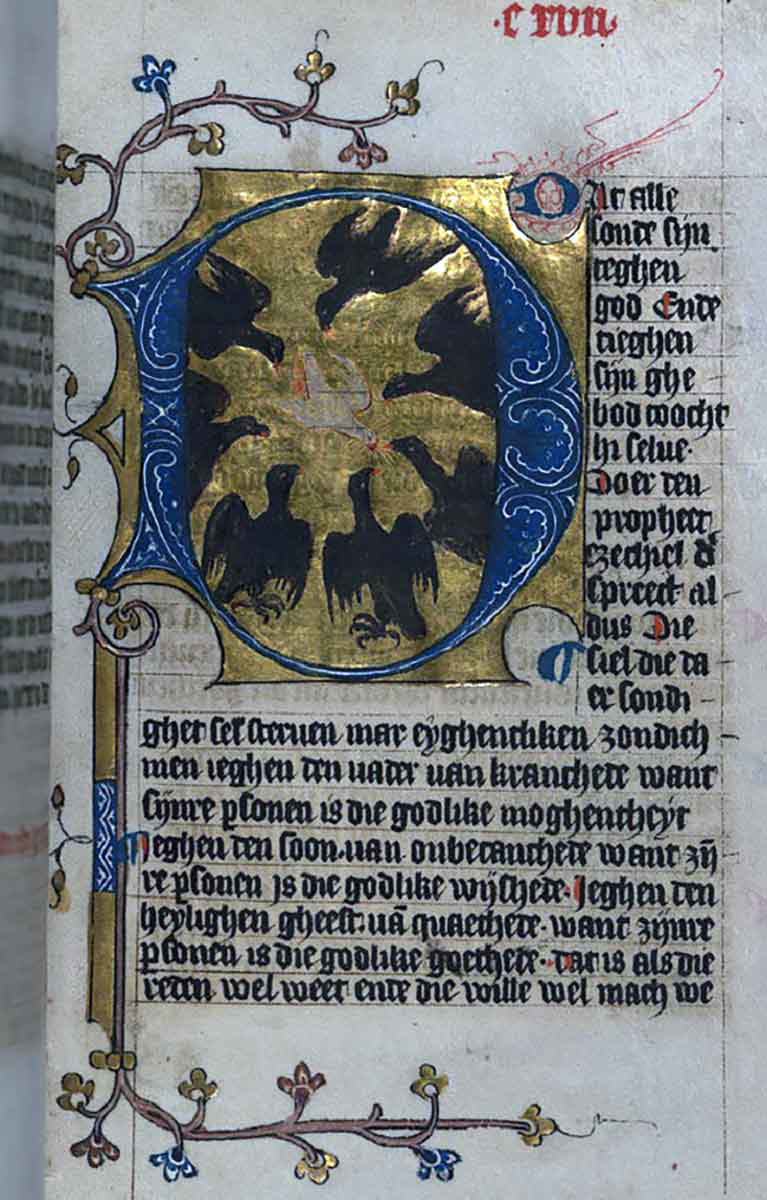 ·c xvii·
Dat alle
sonde sijn
teghen
god Ende
tieghen
sijn ghe
bod toocht
hi selue·
Doer den
propheet
ezechiel d
spreect al
dus Die
siel die da
er sondi
ghet sel steruen mar eyghentliken zondich
men ieghen den vader van kranchede want
sijnre psonen is die godlike moghentheyt
Jeghen den soon·van onbecanthede want zij
re psonen js die godlike wijshede· Jeghen den
heylighen gheest·uā quaethede· want zijnre
psonen is die godlike goethede· dat is als die
reden wel weet ende die wille wel mach we